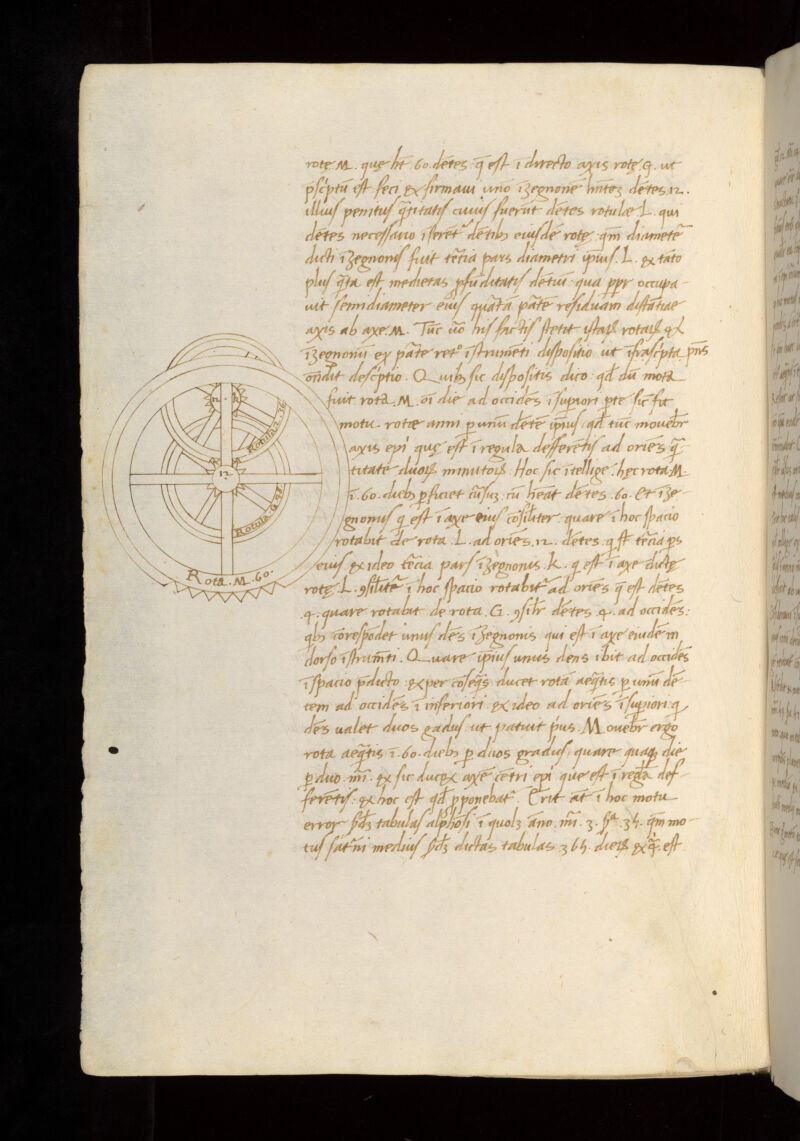 rotę M. quę ht̄ 60. dētes q̄ est ī directo axis rotę G. ut
p̄scptū est feci. et firmaui uno iʒegnonē hn̄teʒ dētes 12.
illius penitus q̄titatis cuius fuerūt dētes rotulæ L. qui
dētes necessario iseret᷑ dētib₉ eiusdē rotę. qm̄ diameter
dicti iʒegnonis fuit tertia pars diametri ipsius. L. et tāto
plus q̄ta est medietas pfūditatis dētiū. qua ppr occupa-
uit semidiameter eius quātā pātē residuam distātiae
axis ab axe M. Tūc his factis stetit istaꝝ rotaꝝ
iʒegnonū ex pāte ret° istrumēti dispositio ut ifrascpta p̄ns
ondit descptio. Quib₉ sic dispositis dico qd̄ dū mota
fuit rota. M. oī die ad occidēs isupiori pte sic fit
motu. rotæ anni p unū dēte ipsius. qd̄ tūc mouebr̄
axis epi quę est ī regula defferētis ad oriēs q̄
titatē duoꝝ minutoꝝ. Hoc sic itellige. hęc rota M.
ī. 60. dieb₉ pficiet cūsuʒ. cū heat dētes. 60. Et iʒe-
gnonus q̄ est ī axe eius cōsiliter. quare ī hoc spacio
rotabit de rota. L. ad oriēs. 12. dētes. q̄ st̄ tēcia ps
eius. et ideo tēcia pars iʒegnonis. k. q̄ est ī axe dictę
rotę. L. ꝯsilitē ī hoc spacio rotabit᷑ ad oriēs q̄ est dētes
4. quare rotabit de rota. G. ꝯsilr̄ dētes. 4. ad occidēs:
qb₉ correspōdet unus dēs iʒegnonis qui est ī axe eiudēm
dorso istrumēti. Quare ipsius unus dens ibit ad occidēs
ispacio pdicto. et per cōseq̄s ducet rotā aeq̄tis p unū dē
tem ad occidēs ī inferiori. et ideo ad oriēs isupiori. q
dēs ualet duos gradus ut patuit pus. Mouebr̄ ergo
rota aeq̄tis ī. 60. dieb₉ p duos gradus. quare quaqʒ die
p duo. m̄. et sic ducet axē cētri epi que est ī regła def
ferētis. et hoc est qd̄ pponebat᷑. Erit at̄ ī hoc motu
error scd̄ʒ tabulas alphōsi ī quolʒ āno. m̄. 3. sa. 35. qm̄ mo-
tus sat᷑ni medius scd̄ʒ dictas tabulas 365. dieꝝ est
12
Rotula L. 36
12
Rotula G. 48
Rota. M. 60.